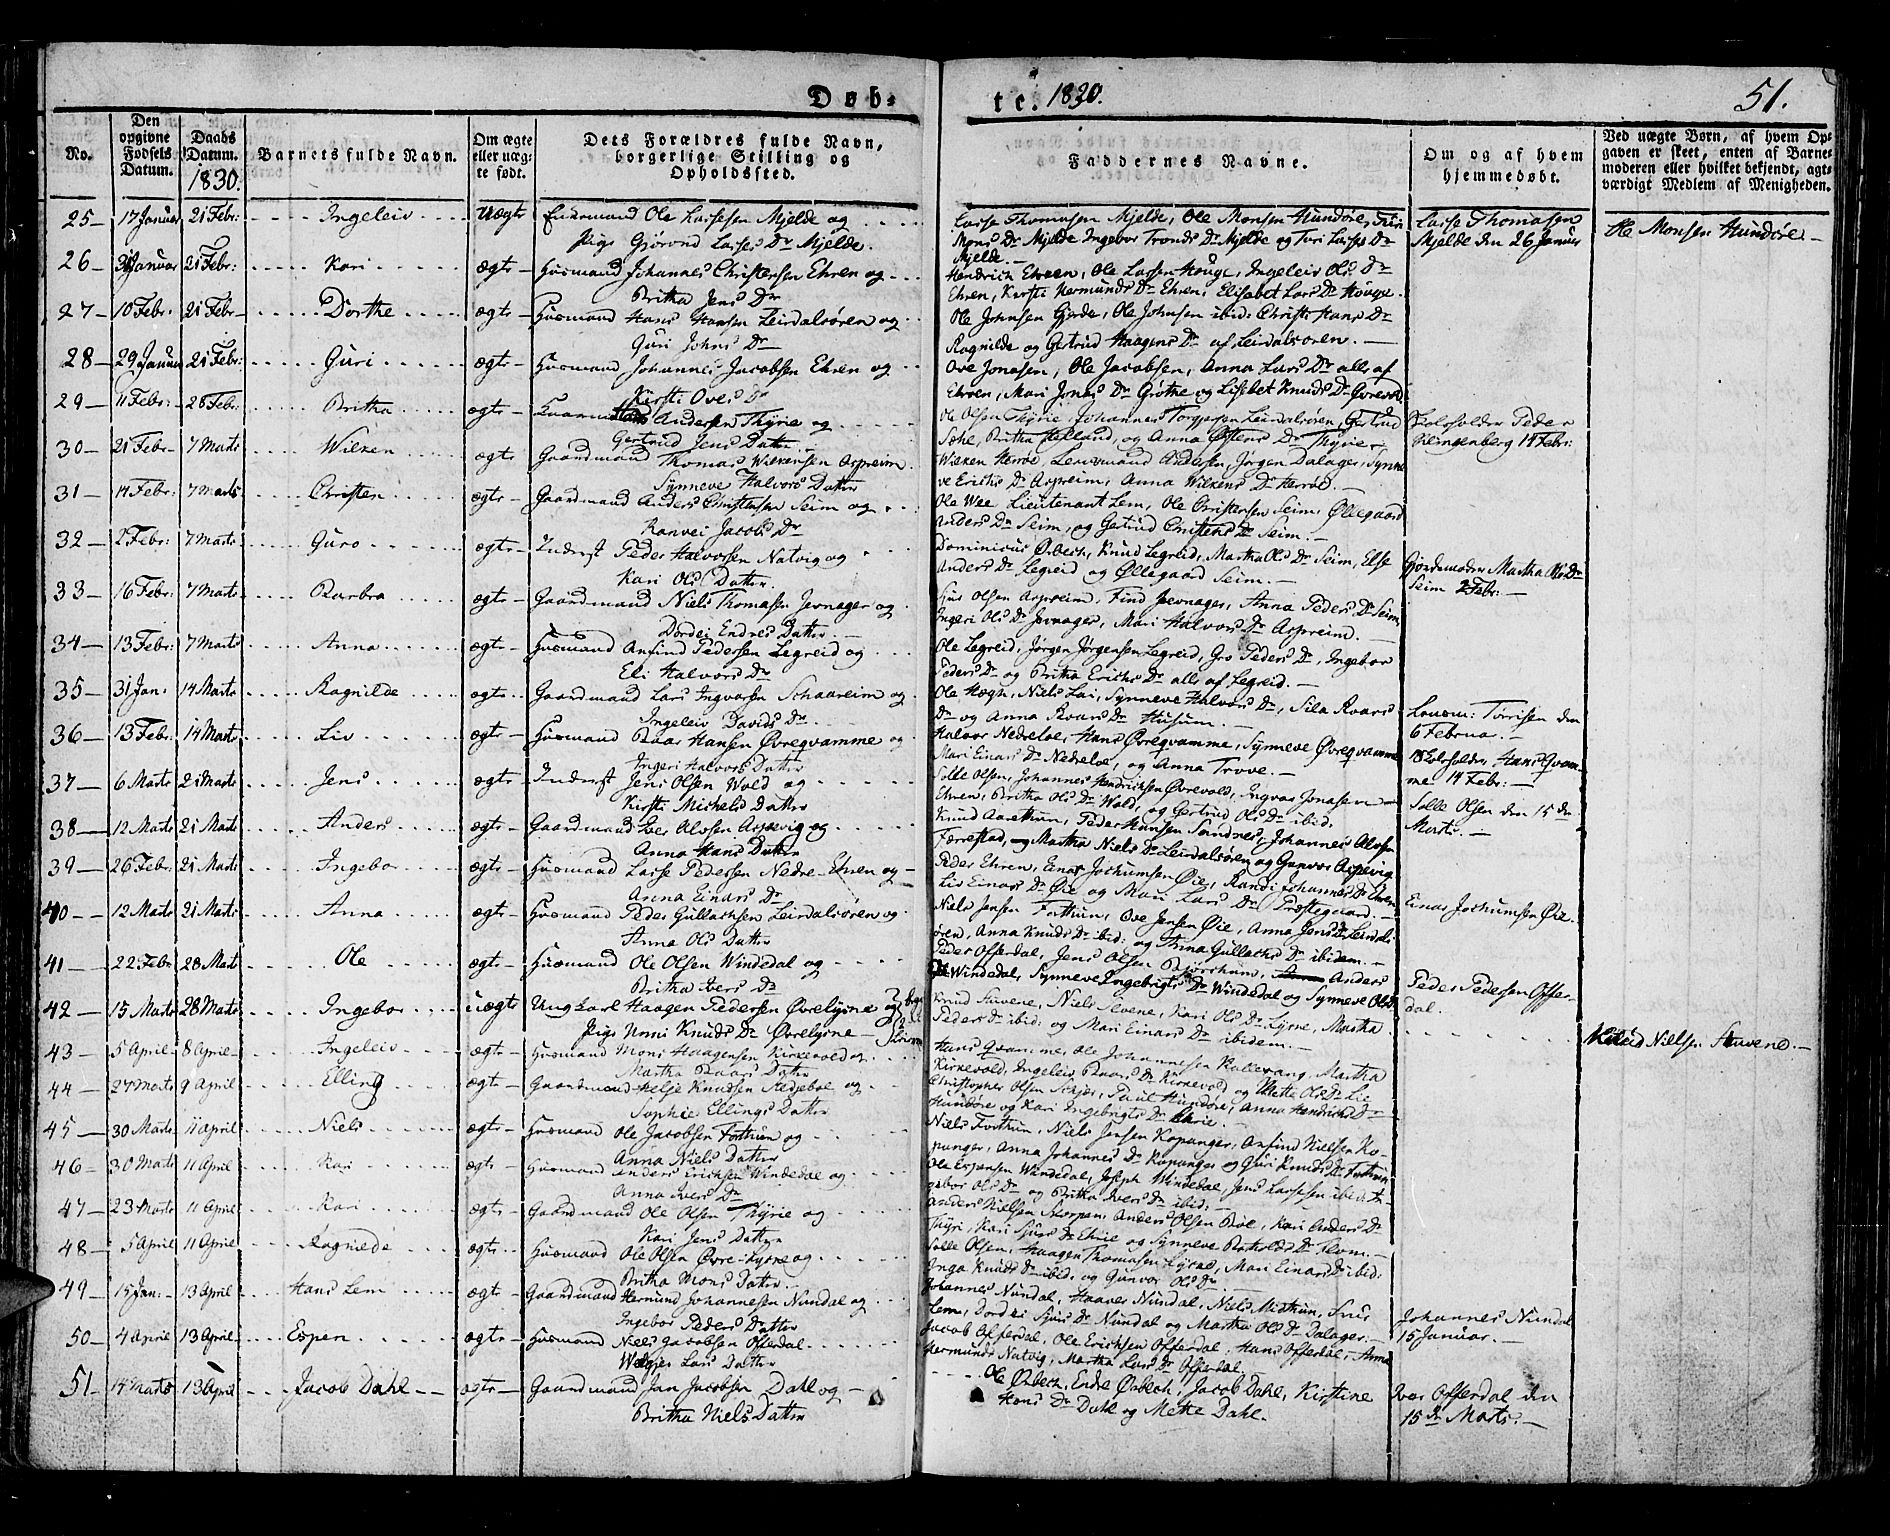 Døb-
te. 1830.
51.
No.
Den opgivne Fødsels Datum.
Daabs Datum. 1830.
Barnets fulde Navn.
Om ægte eller uægte født.
Dets Forældres fulde Navn, borgerlige Stilling og Opholdssted.
Faddernes Navne.
Om og af hvem hjemmedøbt.
Ved uægte Børn, af hvem Opgaven er skeet, enten af Barnemoderen eller hvilket bekjendt, agtværdigt Medlem af Menigheden.
25 17 Januar 21 Febr: Ingeleiv Uægte Enkemand Ole Larsesen Mjelde og
Pige Gjørond Larses Dr Mjelde.
Larse Thomasen Mjelde, Ole Monsen Hundøre, Turi
Mons Dr Mjelde Ingebor Tronds Dr Mjelde og Turi Larses Dr
Mjelde.
Larse Thomasen
Mjelde den 26 Januar
Ole Monsen Hundøre
26 Januar 21 Febr: Kari ægte Husmand Johannes Christensen Ehren og
Britha Jens Dr
Hendrich Ehren, Ole Larsen Houge, Ingeleiv Ols Dr
Ehren, Kirsti Hermunds Dr Ehren, Elisabet Lars Dr Houge.
27 10 Febr: 21 Febr Dorthe ægte Husmand Hans Hansen Leirdalsøren og
Guri Johns Dr
Ole Johnsen Gjerde, Ole Johnsen ibid: Christi Hans Dr
Ragnilde og Gertrud Haagens Dr af Leirdalsøren.
28 29 Januar 21 Febr: Guri ægte Husmand Johannes Jacobsen Ehren og
Kirsti Oves Dr
Ove Jonasen, Ole Jacobsen, Anna Lars Dr alle af
Ehren, Mari Jonas Dr Grøthe og Lisebet Knuds Dr Øvrevold
29 11 Febr: 28 Febr: Britha ægte Andersen Thyrie og
Gertrud Jens Datter
Ole Olsen Thyrie, Johannes Torgersen Leirdalsøren, Gertrud
Britha Helland, og Anna Østens Dr Thyrie
Peder
Klingenberg 14 Febr:
30 21 Febr 7 Marts Wilken ægte Gaardmand Thomas Wilkensen Aspreim
Synneve Halvors Datter
Wilken Herrøe, Lensmand Andersen, Jørgen Dalager, Synne
ve Erichs Dr Aspreim, Anna Wilkens Dr Herrøe.
31 14 Febr: 7 Marts Christen ægte Gaardmand Anders Christensen Seim og
Ranvei Jacobs Dr
Ole Wee, Lieutenant Lem, Ole Christensen Seim, Øllegaard
Anders Dr Seim, og Gertrud Christens Dr Seim.
32 2 Febr: 7 Marts Guro ægte Inderst Peder Halvorsen Natvig og
Kari Ols Datter.
Dominicus Ørbech, Knud Legreid, Martha Ols Dr Seim, Else
Anders Dr Legreid og Øllegaard Seim.
Jordemoder Martha Ols Dr
Seim 2 Febr:
33 16 Febr 7 Marts Barbra ægte Gaardmand Niels Thomasen Jevnager og
Dordei Endres Datter.
Sjur Olsen Aspreim, Find Jevnager, Anna Peders Dr Seim
Ingeri Ols Dr Jevnager, Mari Halvors Dr Aspreim.
34 13 Febr 7 Marts Anna ægte Husmand Anfind Pedersen Legreid og
Eli Halvors Dr
Ole Legreid, Jørgen Jørgensen Legreid, Gro Peders Dr, Ingebor
Peders Dr og Britha Erichs Dr alle af Legreid.
35 31 Jan: 14 Marts Ragnilde ægte Gaardmand Lars Ingvarsen Schaareim og
Ingeleiv Davids Dr
Ole Hægh, Niels Lai, Synneve Halvors Dr, Sila Roars
Dr og Anna Roars Dr Husum.
Lensm: Tørrisen den
6 Februa.
36 13 Febr: 14 Marts Liv ægte Husmand Roar Hansen Øvreqvamme og
Ingeri Halvors Datter
Halvor Nedreloe, Hans Øvreqvamme, Synneve Øvreqvamme
Mari Einars Dr Nedreloe, og Anna Trove.
Hans Qvam-
me 14 Febr:
37 6 Marts 21 Marts Jens ægte Inderst Jens Olsen Wold og
Kirsti Michels Datter
Solle Olsen, Johannes Hendrichsen Øvrevold, Ingvar Jonasen
Ehren, Britha Ols Dr Wald, og Gertrud Ols Dr ibid:
Solle Olsen den 15 de
Marts.
38 12 Marts 21 Marts Anders ægte Gaardmand Iver Alvsen Aspevig og
Anna Hans Datter
Knud Aarethun, Peder Hansen Sandnes, Johannes Alvsen
Færrestad, Martha Niels Dr Leirdalsøren og Gunvor Aspevig
39 26 Febr: 21 Marts Ingebor ægte Husmand Larse Pedersen Nedre-Ehren og
Anna Einars Dr
Peder Ehren, Einar Jochumsen Øie, Randi Johannes Dr Ehren
Liv Einars Dr Øie og Mari Lars Dr Præstegaard.
Einar Jochumsen Øie.
40 12 Marts 21 Marts Anna ægte Husmand Peder Gullachsen Leirdalsøren og
Anna Ols Datter
Niels Jensen Forthun, Ove Jensen Øie, Anna Jens Dr Leirdals
øren, Anna Knuds Dr ibid: og Anna Gullachs Dr ibidem.
41 22 Febr 28 Marts Ole ægte Husmand Ole Olsen Windedal og
Britha Ivers Dr
Peder Offerdal, Jens Olsen Anders
Windedal, Synneve Ingebrigts Dr Windedal og Synneve Ols Dr
Peder Pedersen Offer-
dal.
42 15 Marts 28 Marts Ingebor uægte Ungkarl Haagen Pedersen Øvrelysne og
Pige Unni Knuds Dr Øvrelysne
Knud Stuvene, Niels Stvene, Kari Ols Dr Lysne, Martha
Peders Dr ibid: og Mari Einars Dr ibidem.
Nielsen Stuvene.
43 5 April 8 April Ingeleiv ægte Husmand Mons Haagensen Kirkevold og
Martha Roars Datter
Hans Qvamme, Ole Johannesen Kallevang, Martha
Kirkevold, Ingeleiv Roars Dr Kirkevold og Mette Ols Dr Lie
44 27 Marts 9 April Elling ægte Gaardmand Helje Knudsen Redjeboe og
Sophie Ellings Datter
Christopher Olsen Poul Hundøre, Anna Hendrichs Dr
Hundøre og Kari Ingebrigts Dr
45 30 Marts 11 April Niels ægte Husmand Ole Jacobsen Forthun og
Anna Niels Datter
Niels Forthun, Niels Jensen Kopanger, Anfind Nielsen Ko-
panger, Anna Johannes Dr Kopanger og Guri Knuds Dr Forthun
46 30 Marts 11 April Kari ægte Husmand Anders Erichsen Windedal og
Anna Ivers Dr
Ole Espensen Windedal, Joseph Windedal, Jens Larsesen ibid: In
gebor Ols Dr og Britha Ivers Dr ibid:
47 23 Marts 11 April Kari ægte Gaardmand Ole Olsen Thyrie og
Kari Jens Datter
Anders Nielsen Anders Olsen Kari Anders Dr
Thyri, Kari Sjurs Dr og Synneve
48 5 April 11 April Ragnilde ægte Husmand Ole Olsen Øvre-Lysne og
Britha Mons Datter
Solle Olsen, Haagen Thomasen Lysne, Mari Einars Dr ibid:
Inga Knuds Dr ibid: og Gunvor Ols Dr
49 15 Jan: 13 April Hans Lem ægte Gaardmand Hermund Johannesen Nundal og
Ingebor Peders Datter
Johannes Nundal, Haavor Nundal, Niels Midthun,
Lem, Dordei Sjurs Dr Nundal og Martha Ols Dr Dalager.
Johannes Nundal
15 Januar.
50 4 April 13 April Espen ægte Husmand Niels Jacobsen Offerdal
Lars Datter
Jacob Offerdal, Ole Erichsen Offerdal, Hans Offerdal, Anna
Hermunds Natvig, Martha Lars Dr Offerdal
51 14 Marts 13 April Jacob Dahl ægte Gaardmand Jan Jacobsen Dahl og
Britha Niels Datter
Ole Ørbech, Endre Ørbech, Jacob Dahl, Kirstine
Hans Dr Dahl og Mette Dahl.
Iver Offerdal den
15 de Marts.